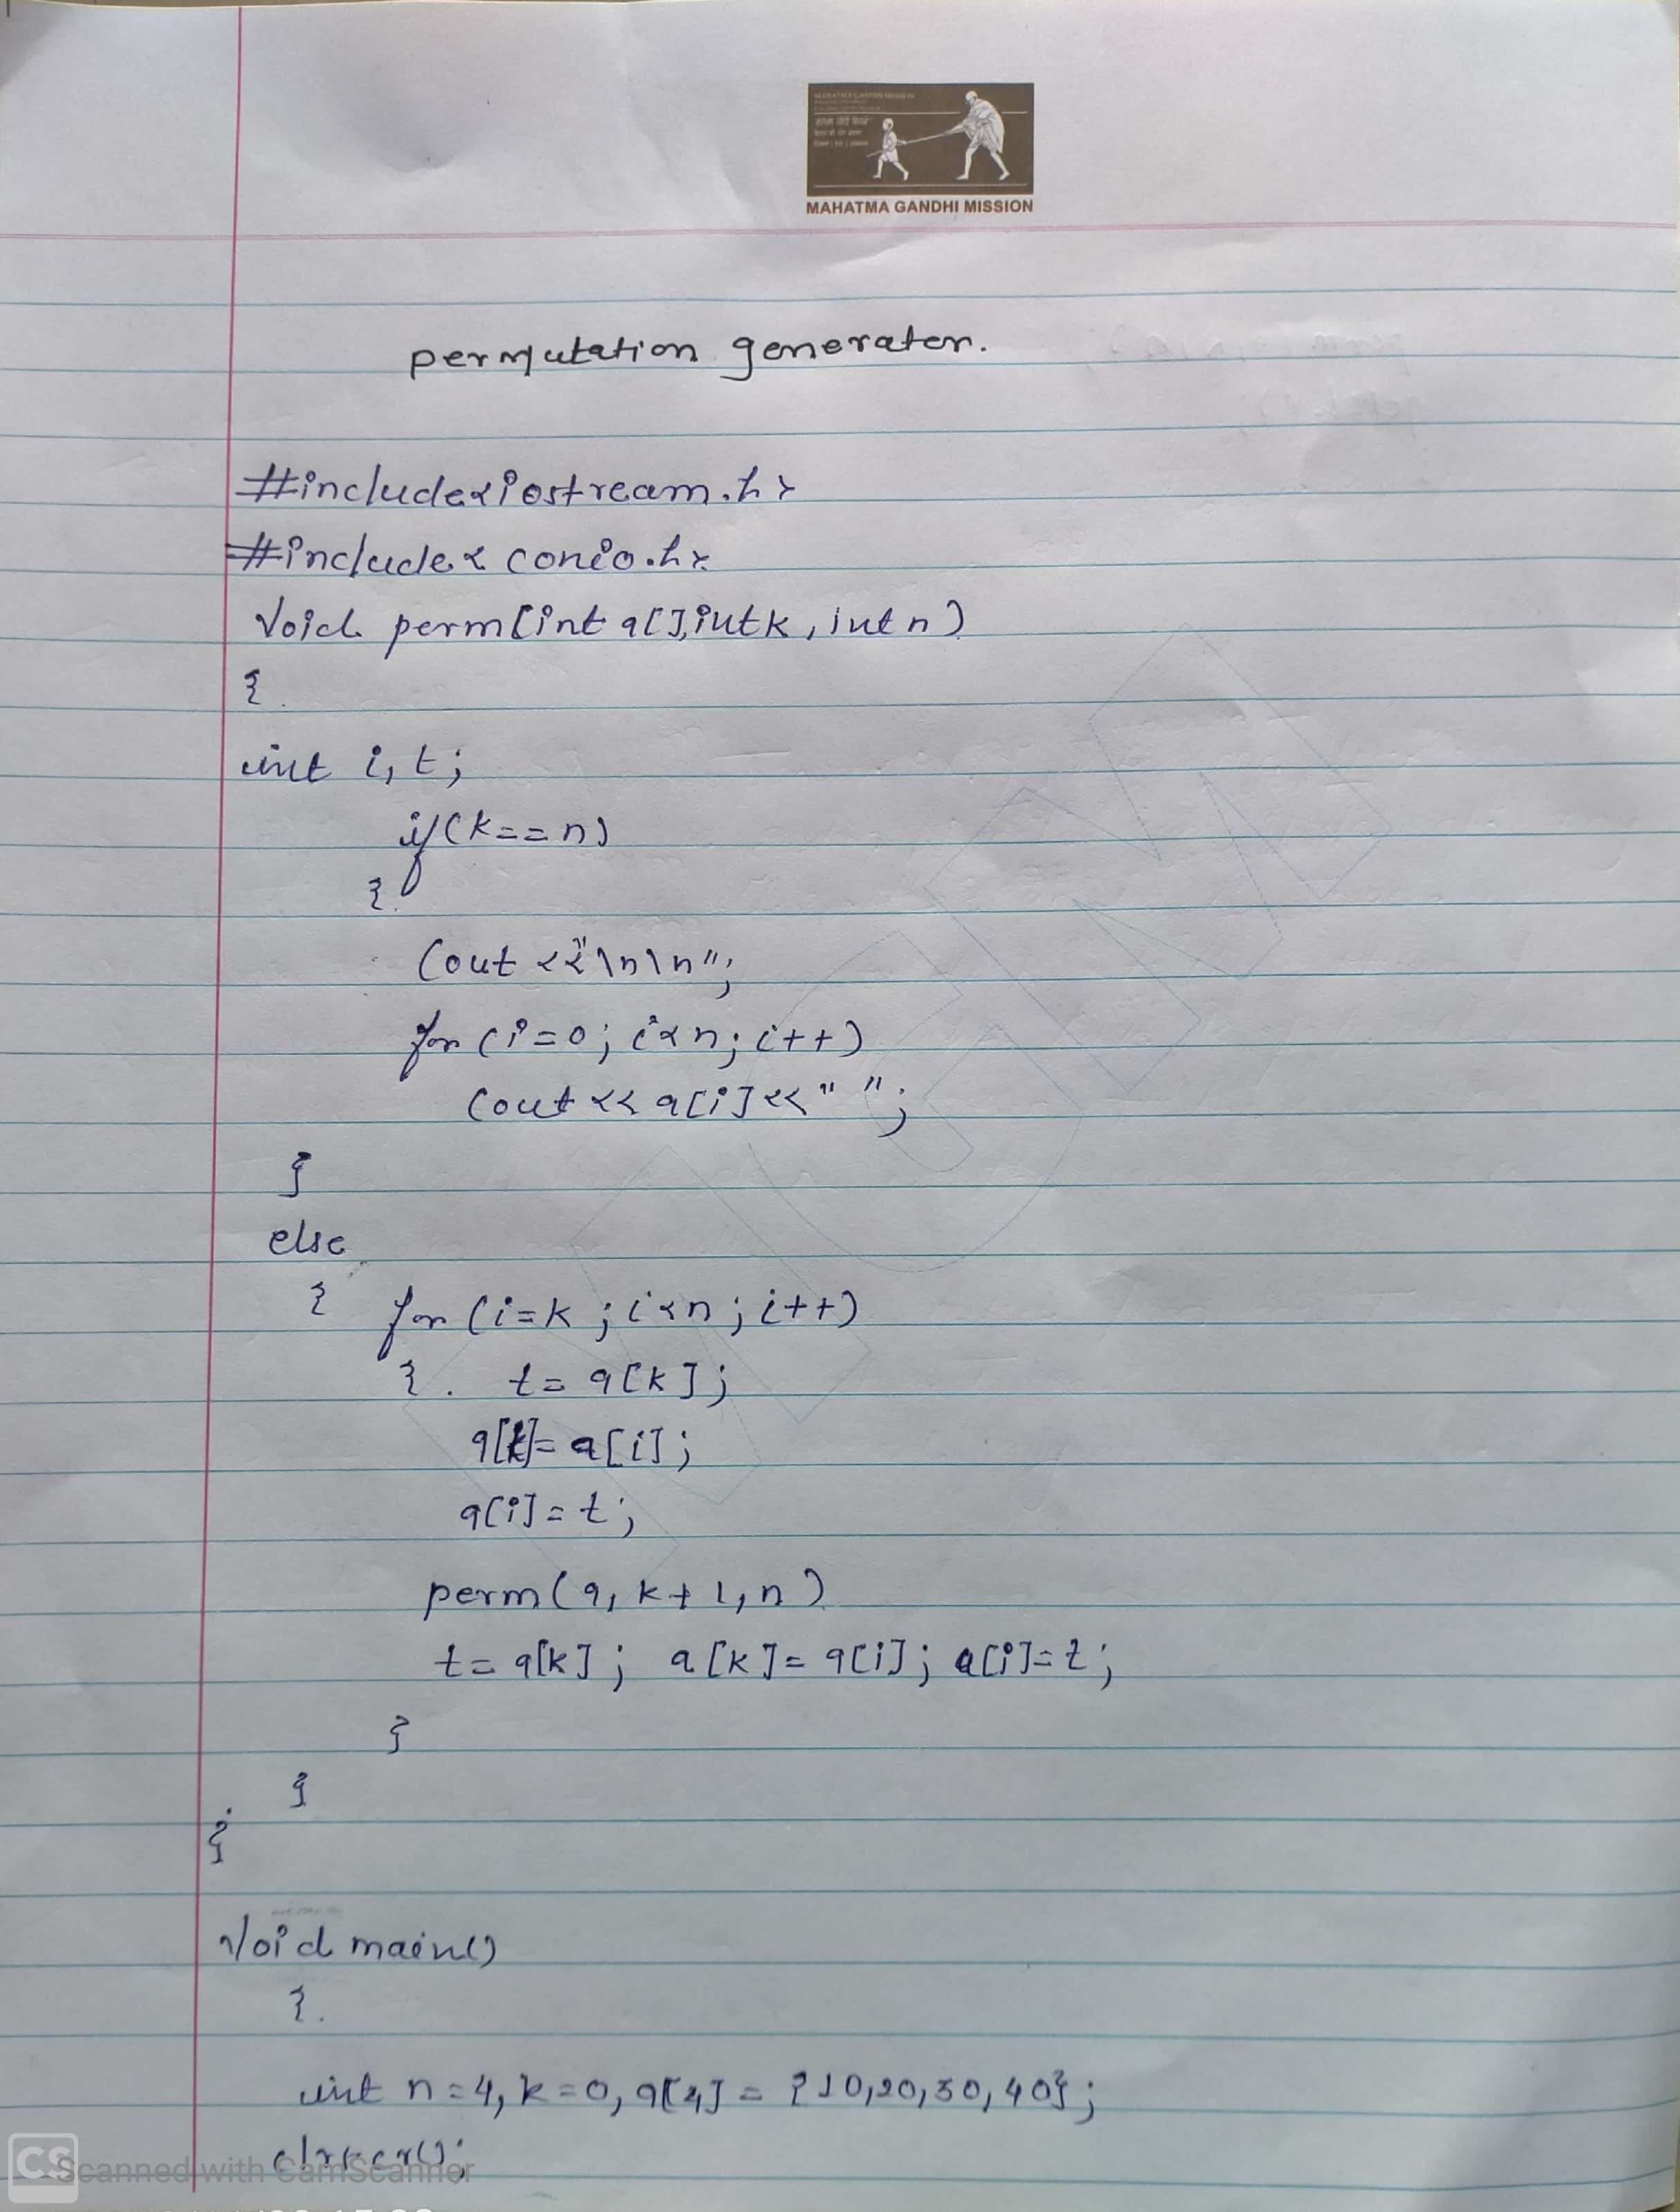 MAHATMA GANDHI MISSION
permutation generater.
#include<iostream.h>
#include< conio.h>
Void perm[int a[],int k, int n)
{
int i, t;
if(k==n)
{
Cout <<"\n\n";
for (i=0; i<n; i++)
Cout << a[i]<<" ";
}
else
{ for (i=k; i<n; i++)
{ t= a[k];
a[k]= a[i];
a[i]=t;
perm(a, k+1, n)
t= a[k]; a[k]= a[i]; a[i]=t;
}
}
}
Void main()
{
int n=4, k=0, a[4] = {10,20,30,40};
clrscr();
CS Scanned with CamScanner